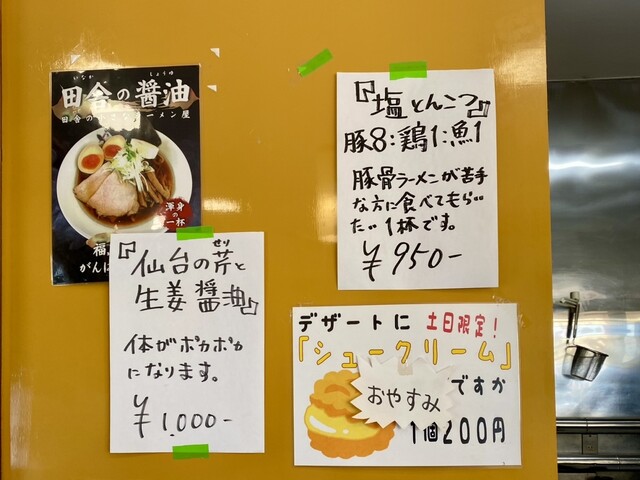 いなか しょうゆ
田舎の醤油
渾身の
一杯
福
がんば
『塩とんこつ』
豚8:鶏1:魚1
豚骨ラーメンが苦手
な方に食べてもらい
たい1杯です。
¥950-
せり
『仙台の芹と
生姜醤油』
体がポカポカ
になります。
¥1,000-
デザートに 土日限定!
「シュークリーム」
おやすみ
ですか
1個200円